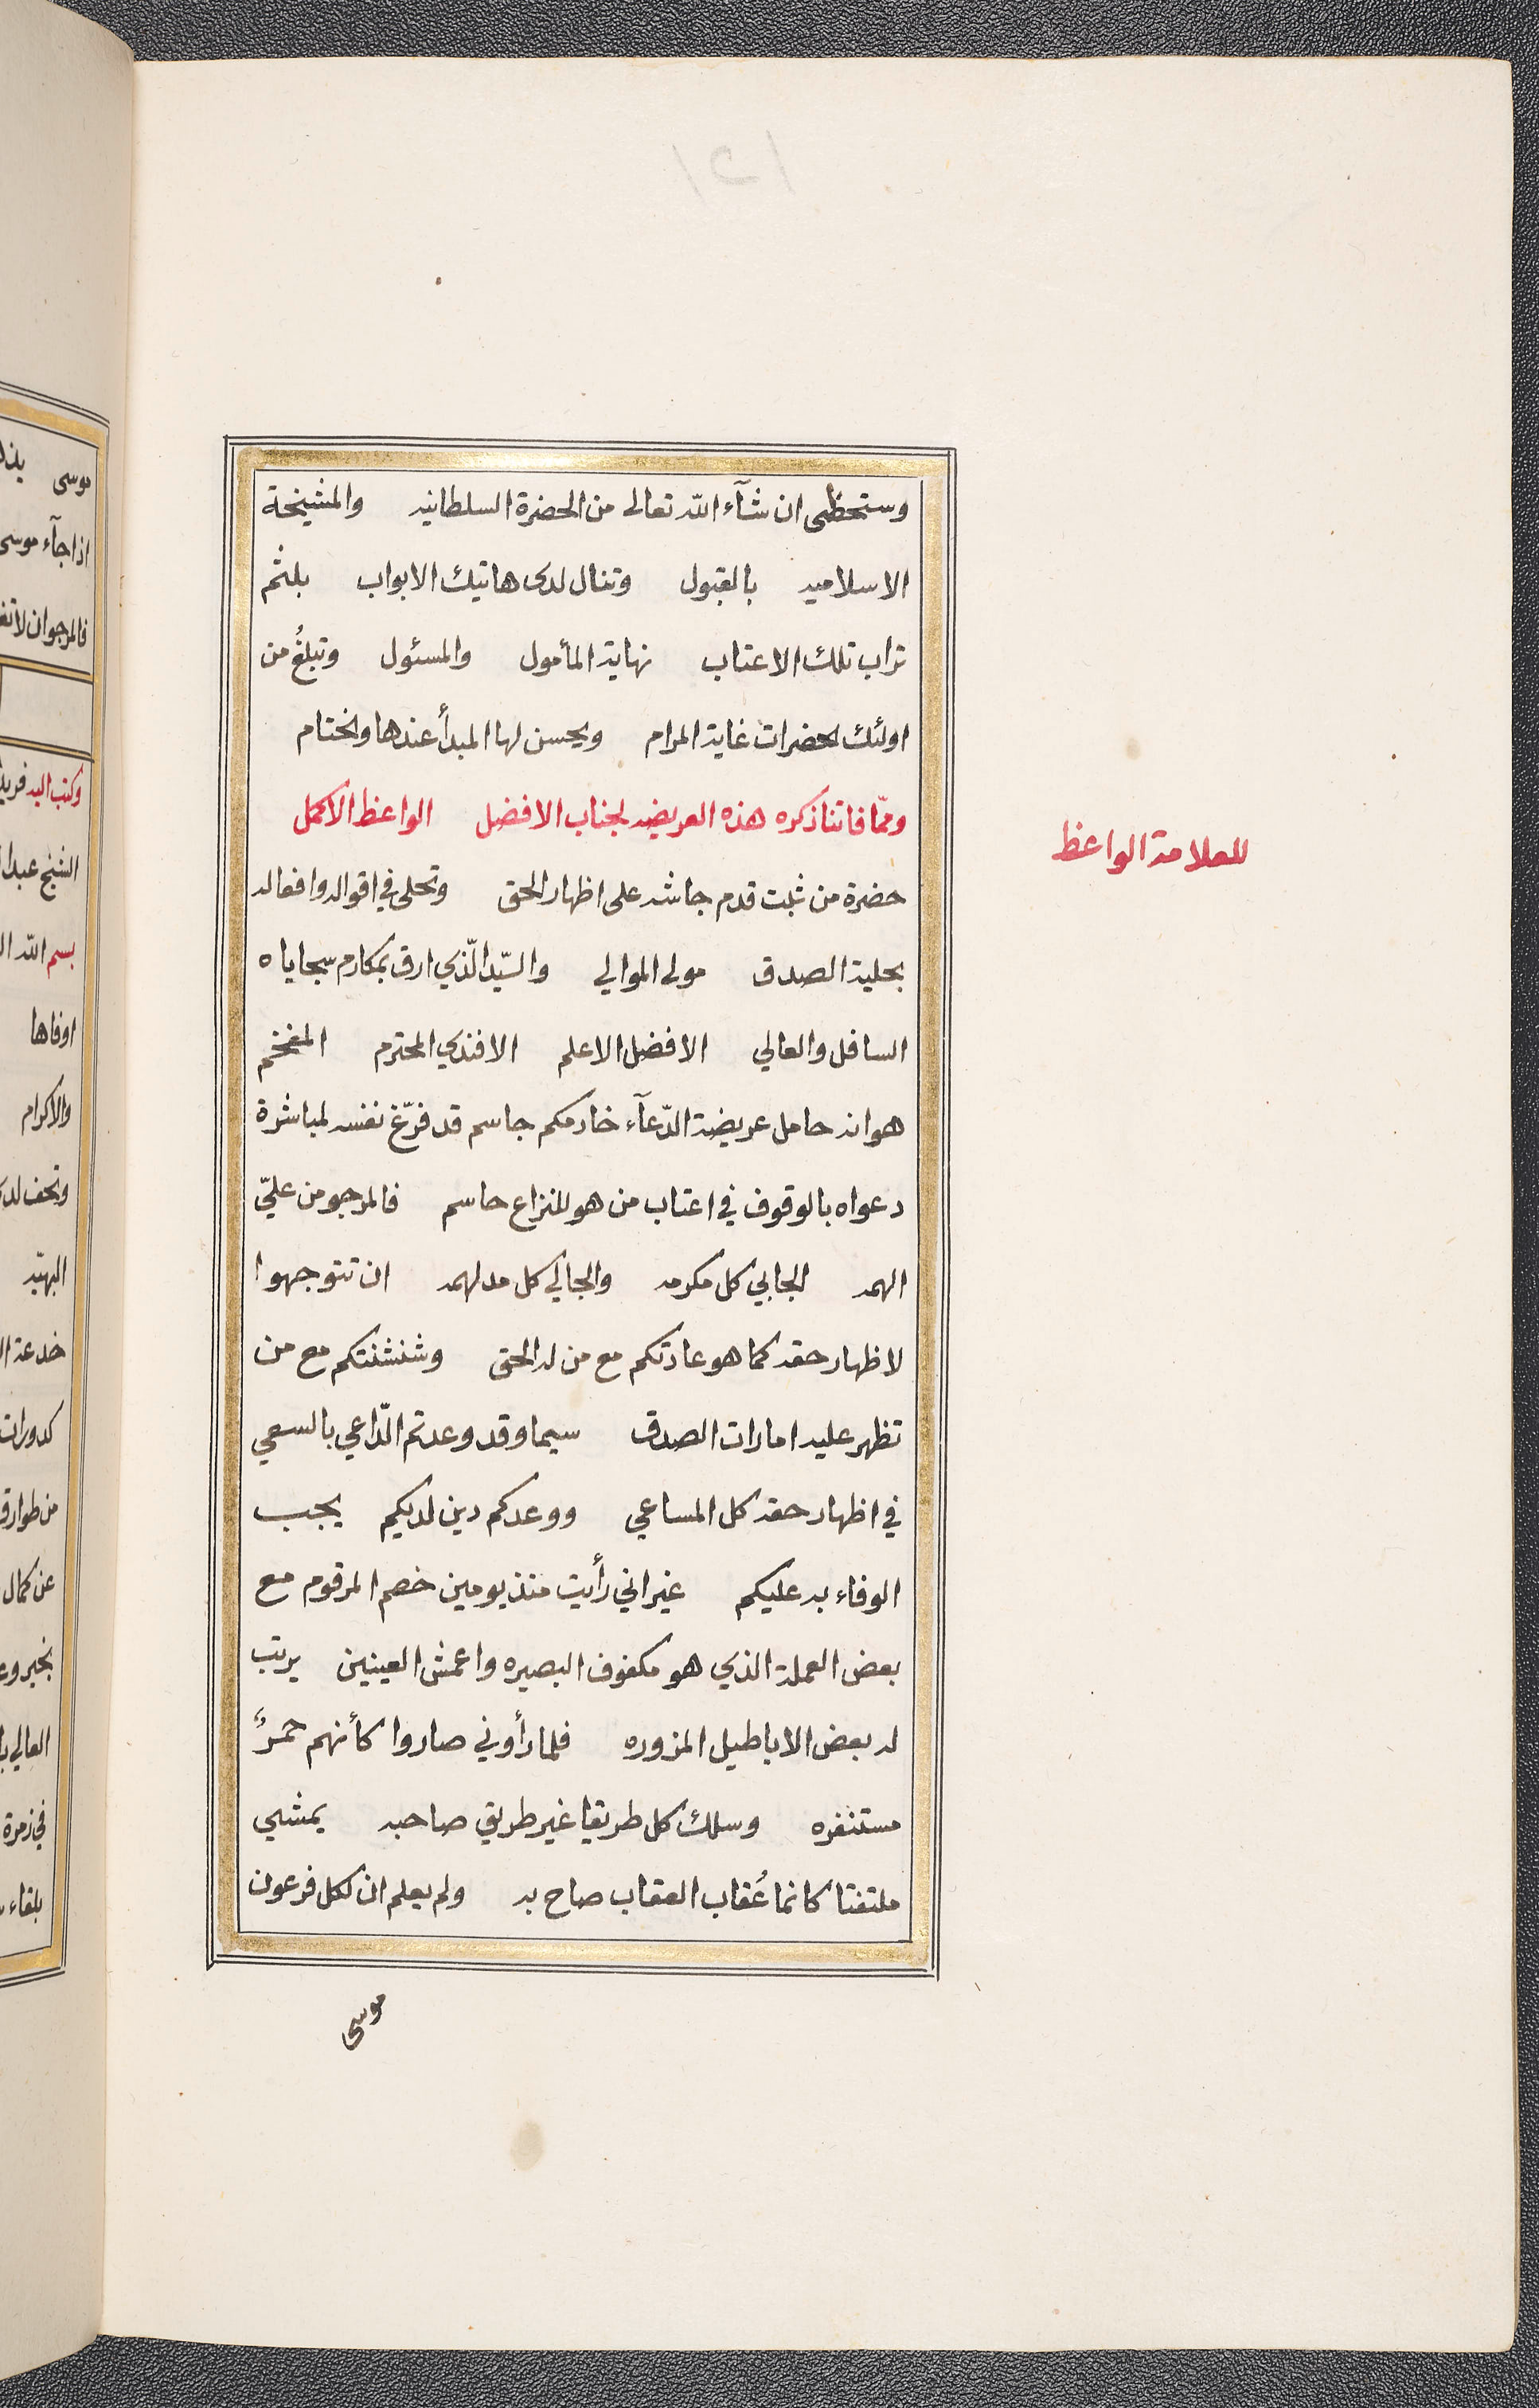 وستحظى ان شآء الله تعالى من الحضرة السلطانيه والمشيخة
الاسلاميه بالقبول وتنال لدى هاتيك الابواب بلثم
تراب تلك الاعتاب نهاية المأمول والمسئول وتبلغُ من
اولئك الحضرات غاية المرام ويحسن لها المبدأ عندها والختام
وممّا فاتنا ذكره هذه العريضه لجناب الافضل الواعظ الاكمل
للعلامة الواعظ
حضرة من ثبت قدم جاشه على اظهار الحق وتحلى في اقواله وافعاله
بحلية الصدق مولى الموالي والسّيد الّذي ارق بمكارم سجاياه
السافل والعالي الافضل الاعلم الافندي المحترم المفخم
هو انه حامل عريضة الدّعآء خادمكم جاسم قد فرّغ نفسه لمباشرة
دعواه بالوقوف في اعتاب من هو للنزاع حاسم فالمرجو من عليّ
الهمه الجابي كل مكرمه والجالي كل مدلهمه ان تتوجهوا
لاظهار حقه كما هو عادتكم مع من له الحق وشنشنتكم مع من
تظهر عليه امارات الصدق سيما وقد وعدتم الدّاعي بالسعي
في اظهار حقه كل المساعي ووعدكم دين لديكم يجب
الوفاء به عليكم غير اني رأيت منذ يومين خصم المرقوم مع
بعض العملة الذي هو مكفوف البصيره واعمش العينين يرتب
له بعض الاباطيل المزوره فلما رأوني صاروا كأنهم حمرٌ
مستنفره وسلك كل طريقا غير طريق صاحبه يمشي
ملتفتا كانما عُقاب العقاب صاح به ولم يعلم ان لكل فرعون
موسى
موسى
اذا جآء موسى
فالمرجو ان لا
وكتب اليه
الشيخ
بسم الله
اوفاها
والاكرام
البهيّه
كدورات
عن كمال
العالي
في زمرة
بلقاء